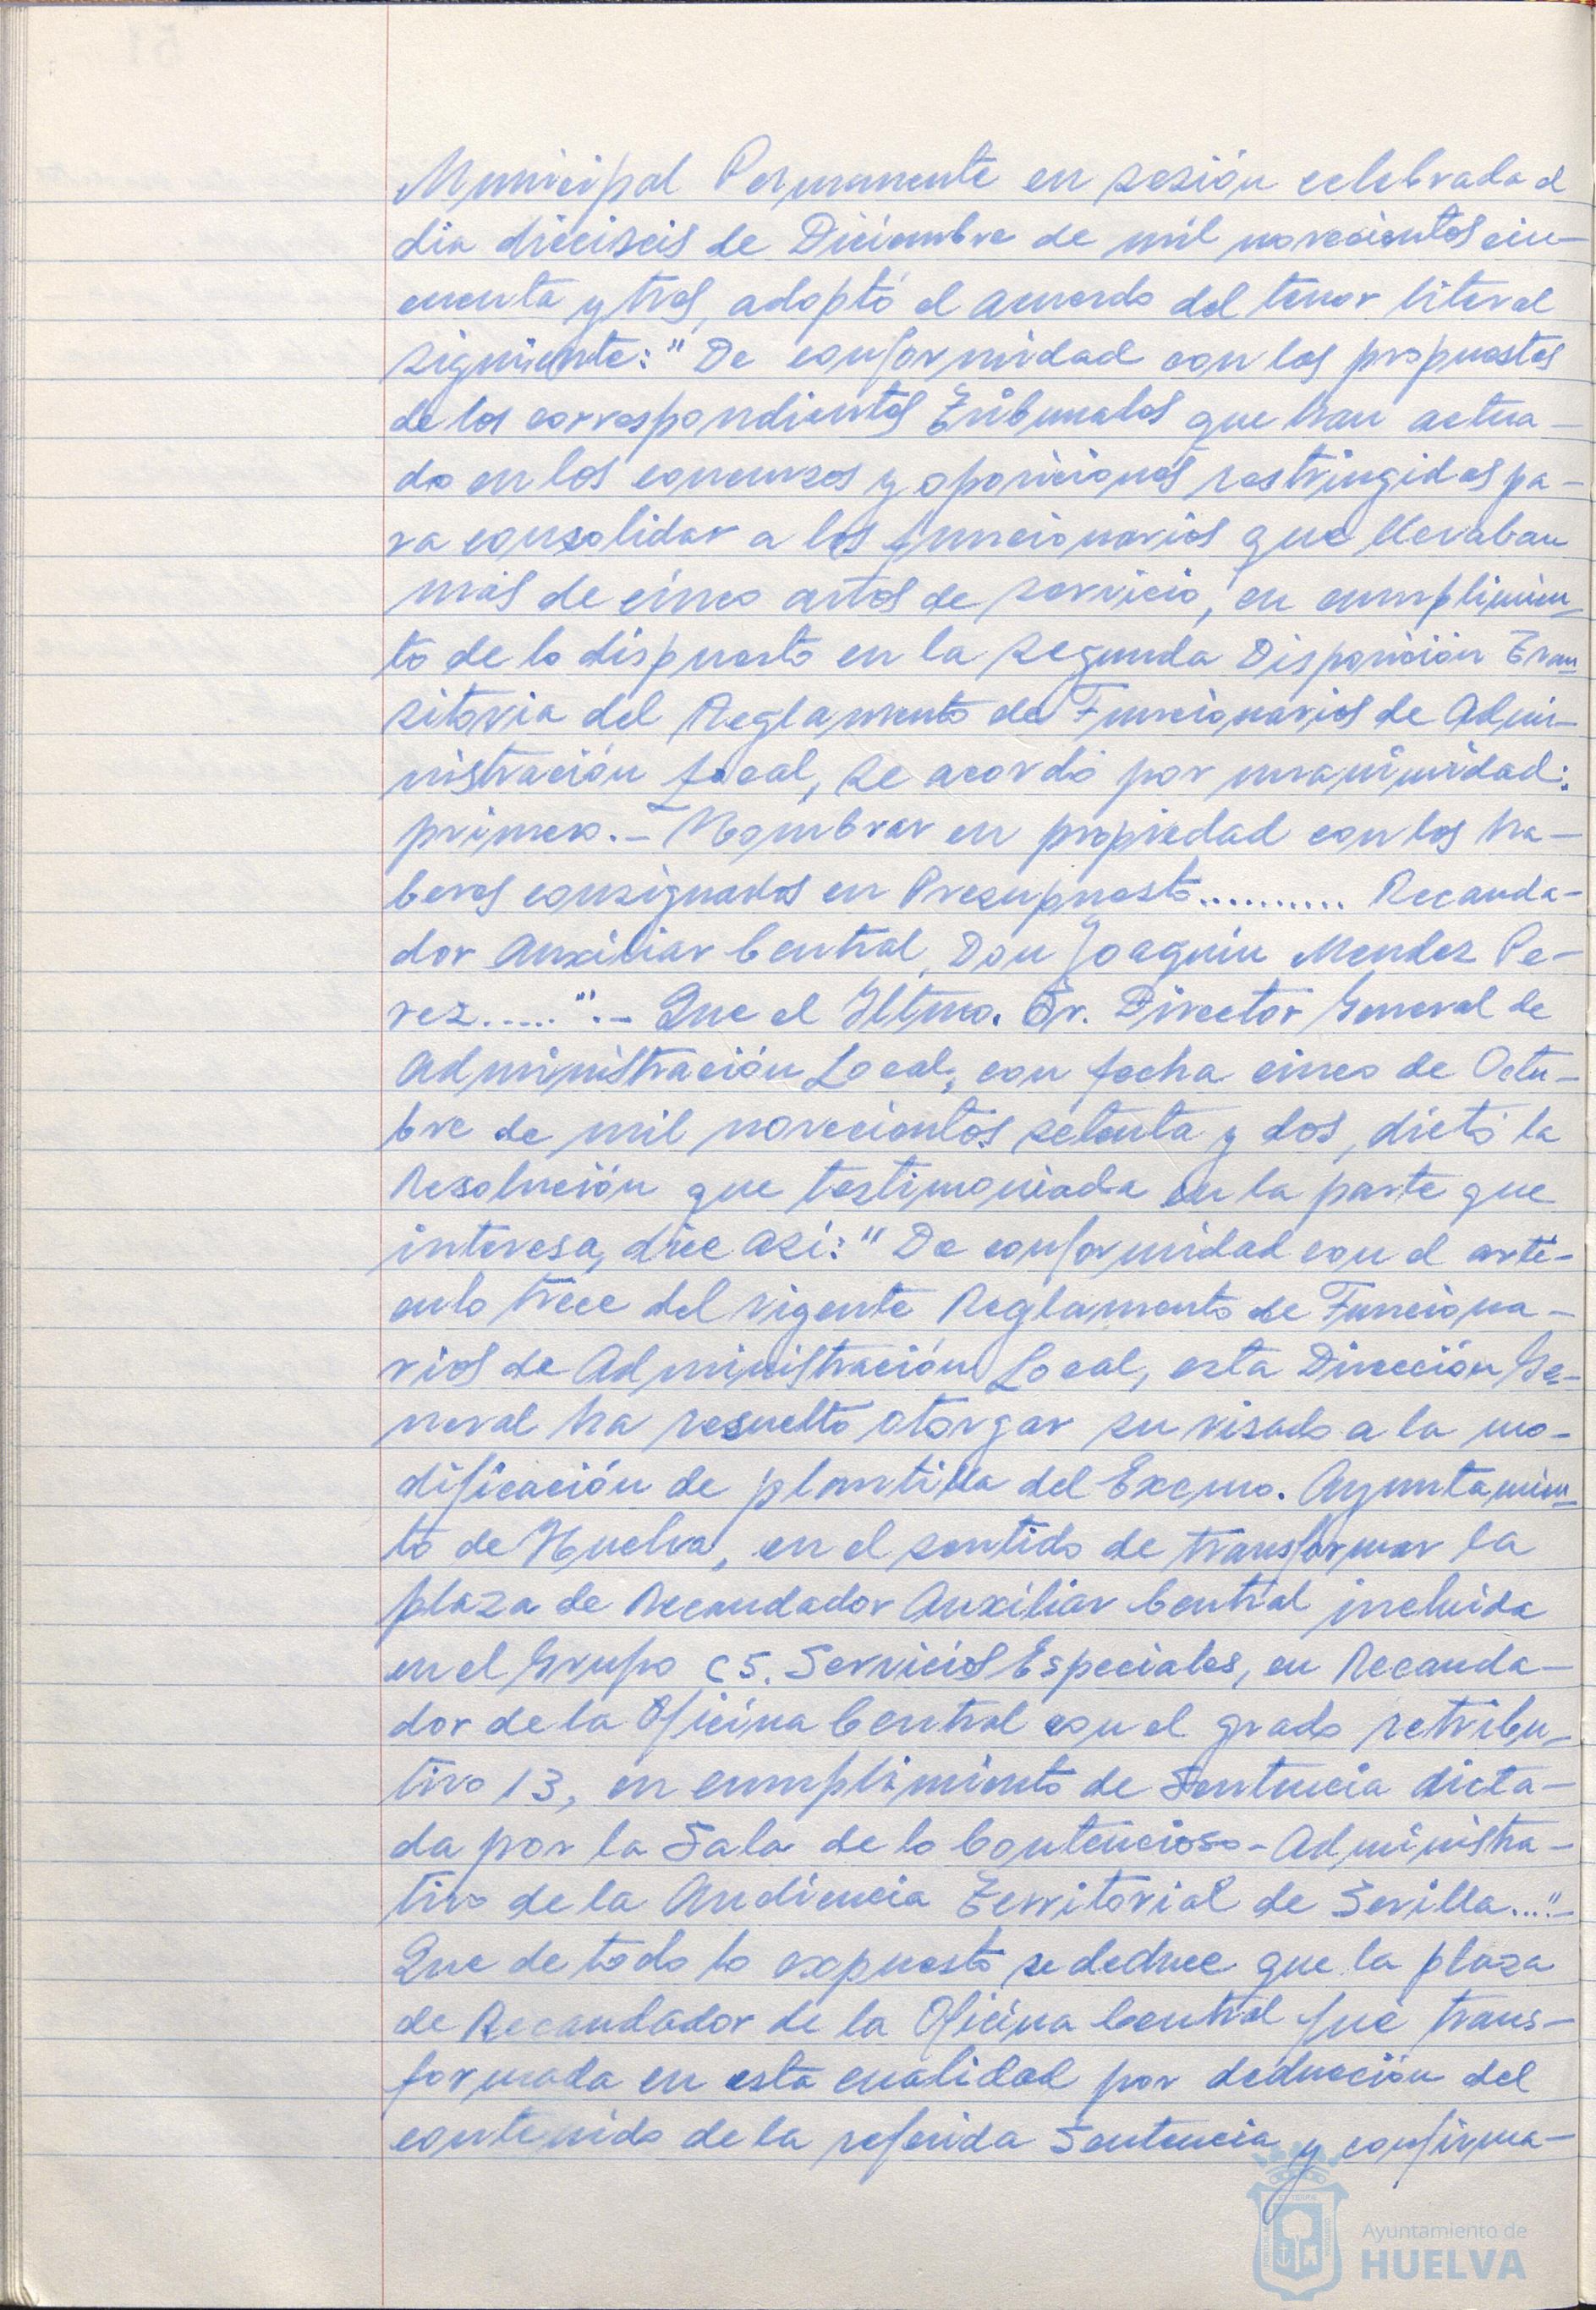 Municipal Permanente en sesión celebrada el
dia dieciseis de Diciembre de mil novecientos cin-
cuenta y tres, adoptó el acuerdo del tenor literal
siguiente: " De conformidad con las propuestas
de los correspondientes Tribunales que han actua-
do en los concursos y oposiciones restringidas pa-
ra consolidar a los funcionarios que llevaban
más de cinco años de servicio, en cumplimien-
to de lo dispuesto en la segunda Disposición Tran-
sitoria del Reglamento de Funcionarios de Admi-
nistración Local, se acordó por unanimidad:
primero.- Nombrar en propiedad con los ha-
beres consignados en Presupuesto.......... Recauda-
dor Auxiliar Central, Don Joaquin Mendez Pe-
rez..... ".- Que el Iltmo. Sr. Director General de
Administración Local, con fecha cinco de Octu-
bre de mil novecientos setenta y dos, dictó la
Resolución que testimoniada en la parte que
interesa, dice asi: " De conformidad con el arti-
culo trece del vigente Reglamento de Funciona-
rios de Administración Local, esta Dirección Ge-
neral ha resuelto otorgar su visado a la mo-
dificación de plantilla del Excmo. Ayuntamien-
to de Huelva, en el sentido de transformar la
plaza de Recaudador Auxiliar Central incluida
en el Grupo C5. Servicios Especiales, en Recauda-
dor de la Oficina Central con el grado retribu-
tivo 13, en cumplimiento de Sentencia dicta-
da por la Sala de lo Contencioso-Administra-
tivo de la Audiencia Territorial de Sevilla..."-
Que de todo lo expuesto se deduce que la plaza
de Recaudador de la Oficina Central fué trans-
formada en esta cualidad por deducción del
contenido de la referida Sentencia y confirma-
Ayuntamiento de
HUELVA